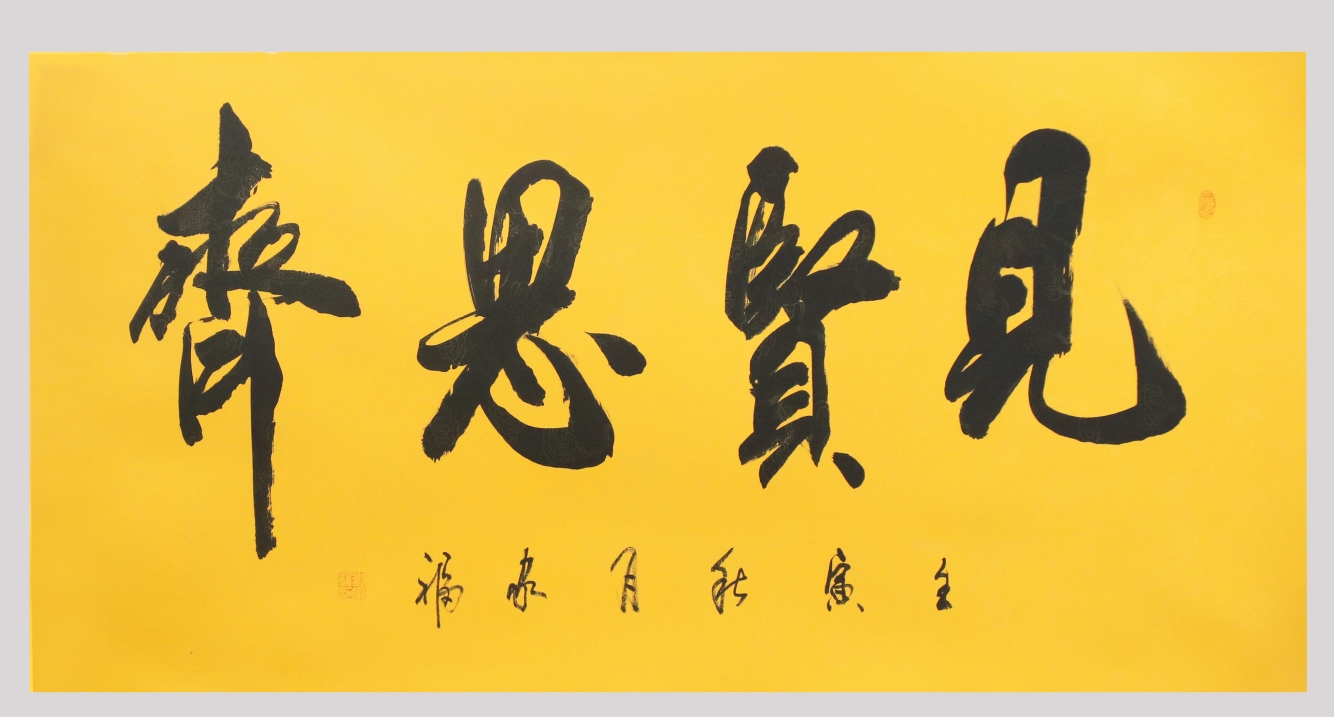 見賢思齊
壬寅秋月永福